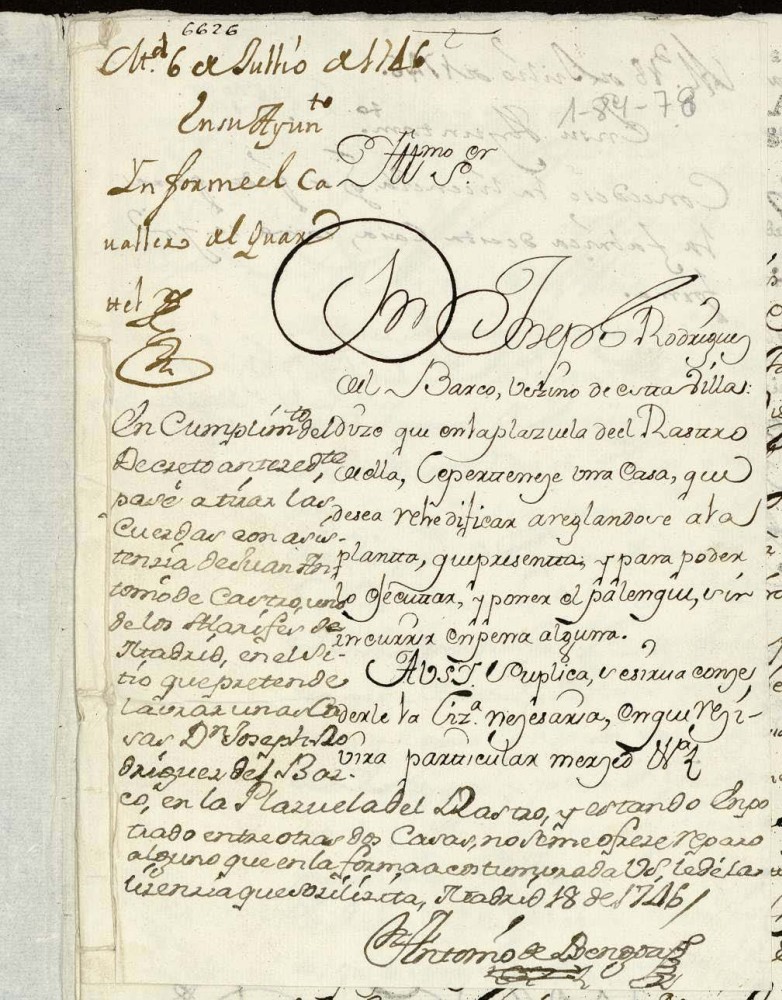 6626
Md. 6 de Jullio de 1746
En su Ayunto
Informe el Ca
vallero del Quar
tel
1-84-78
Illmo Sor
Dn Joseph Rodriguez
del Barco, vezino de esta Villa:
dize que en la plazuela deel Rastro
de ella, le pertteneze una Casa, que
desea rehedificar areglandose a la
plantta, que presentta; y para poder
lo ejecuttar, y poner el palenque, sin
incurrir en penna alguna.
A V.S.Y. Suplica, se sirva conze
derle la lizª. nezesaria, en que rezi-
vira particular merzed
En Cumplimto del
Decreto antezedte
pasé a tirar las
Cuerdas con asis-
tenzia de Juan An
tonio de Castro, uno
de los Alarifes de
Madrid, en el si-
tio que pretende
labrar unas Ca
sas Dn Joseph Ro
driguez del Bar-
co, en la Plazuela del Rastro, y estando Enpo
trado entre otras dos Casas, no se me ofreze reparo
alguno que en la forma acostumbrada VS. le dé la
lizenzia que solizita, Madrid 18 de 1746
Antonio de Bengoa